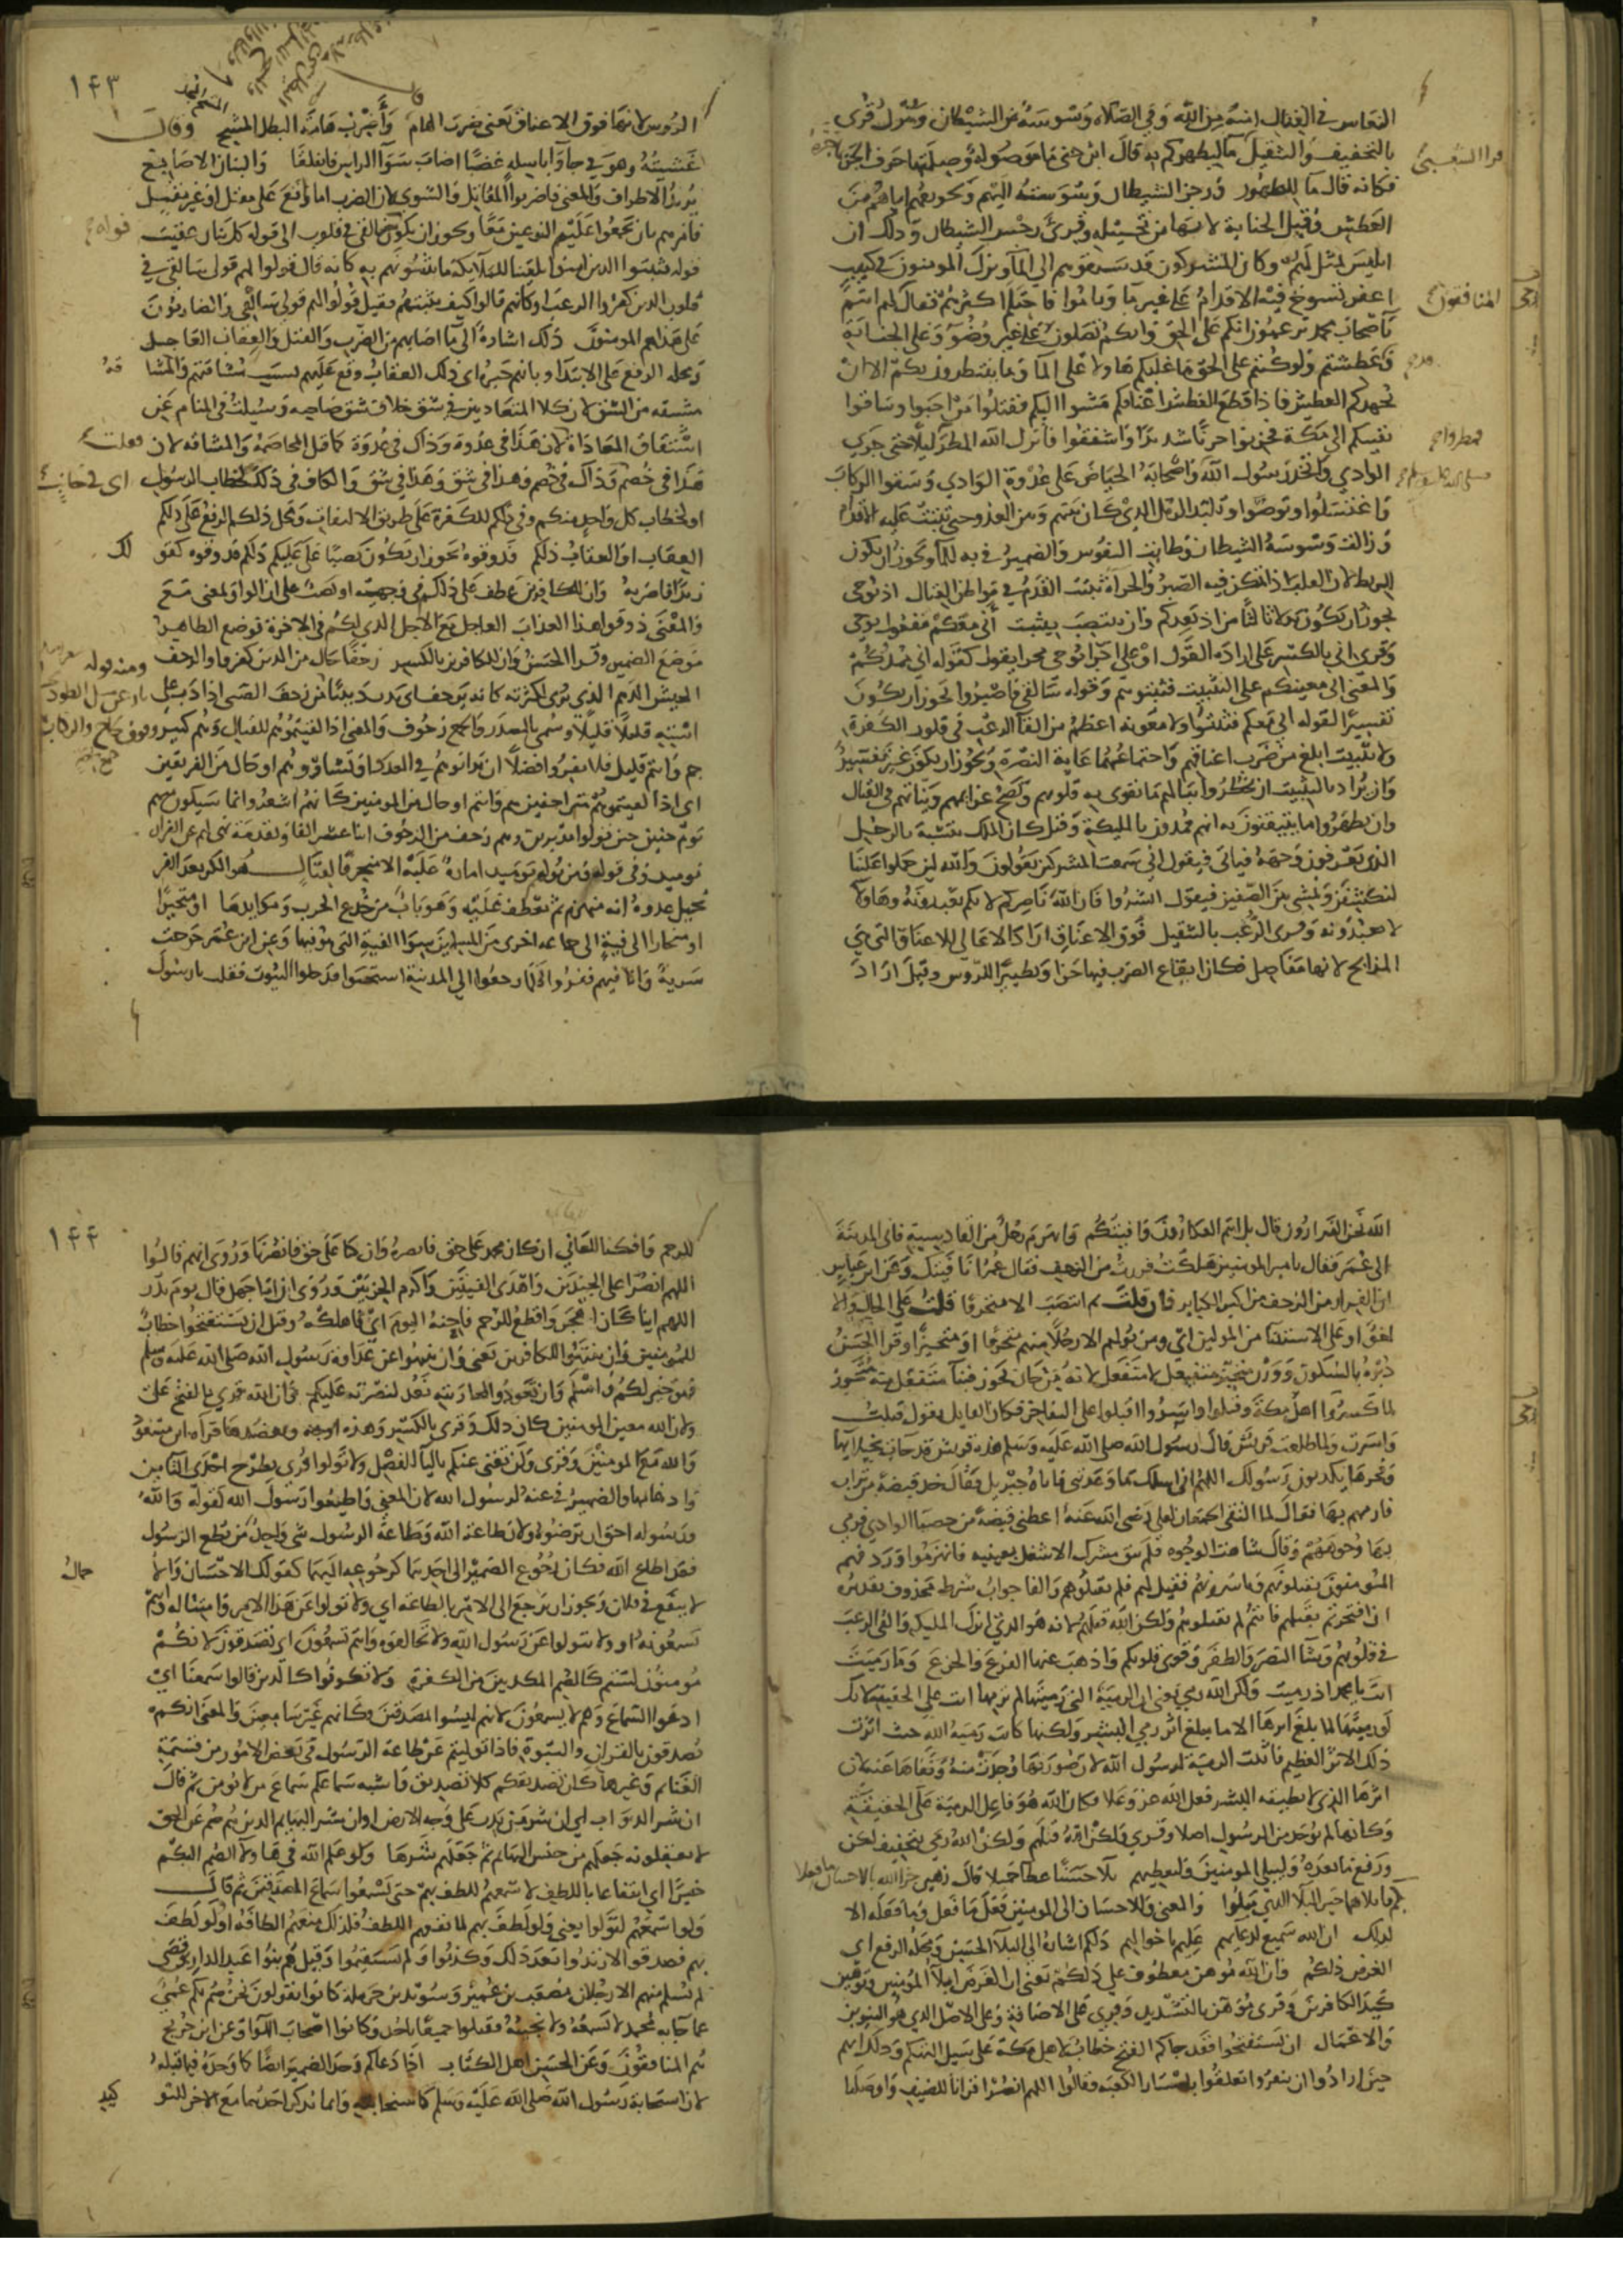 النعاس في القتال امنة من الله وفي الصلاة وسوسة من الشيطان وينزل قرئ
بالتخفيف والتثقيل ما ليطهركم به قال ابن جني ما موصولة وصلتها حرف الجر بما جره
قرا الشعبي
فكانه قال ما للطهور ورجز الشيطان وسوسته اليهم وتخويفه اياهم من
العطش وقيل الجنابة لانها من تخييله وقرئ رجس الشيطان وذلك ان
ابليس تمثل لهم وكان المشركون قد سبقوهم الي الماء ونزل المومنون في كثيب
اعفر تسوخ فيه الاقدام على غير ماء وناموا فاحتلم اكثرهم فقال لهم انتم
يا اصحاب محمد تزعمون انكم على الحق وانكم تصلون على غير وضوء وعلى الجنابة
وقد عطشتم ولو كنتم على الحق ما غلبكم هاولا على الما وما ينتظرون بكم الا ان
يجهدكم العطش فاذا قطع العطش اعناقكم مشوا اليكم فقتلوا من احبوا وساقوا
بقيتكم الى مكة فحزنوا حزنا شديدا واشفقوا فانزل الله المطر ليلا حتى جرى
الوادي واتخذ رسول الله واصحابه الحياض على عدوة الوادي وسقوا الركاب
واغتسلوا وتوضوا وتلبد الرمل الذي كان بينهم وبين العدو حتى تثبت عليه الاقدام
وزالت وسوسة الشيطان وطابت النفوس والضمير في به للماء ويجوز ان يكون
للربط لان القلب اذا تمكن فيه الصبر والجراة ثبتت القدم في مواطن القتال اذ يوحى
يجوز ان يكون بدلا ثالثا من اذ يعدكم وان ينتصب بيثبت اني معكم مفعول يوحى
وقرئ اني بالكسر على ارادة القول او على اجرا يوحى مجرى يقول كقوله اني ممدكم
والمعنى اني معينكم على التثبيت فثبتوهم وقوله سالقي فاضربوا يجوز ان يكون
تفسيرا لقوله اني معكم فثبتوا ولا معونة اعظم من القاء الرعب في قلوب الكفرة
ولا تثبيت ابلغ من ضرب اعناقهم واجتماعهما غاية النصرة ويجوز ان يكون غير تفسير
وان يراد بالتثبيت ان يخطروا ببالهم ما تقوى به قلوبهم وتصح عزايمهم ونياتهم في القتال
وان يظهروا ما يتيقنون به انهم ممدون بالمليكة وقيل كان الملك يتشبه بالرجل
الذي يعرفون وجهه فياتي فيقول اني سمعت المشركين يقولون والله لين حملوا علينا
لننكشفن ويمشي بين الصفين فيقول ابشروا فان الله ناصركم لانكم تعبدونه وهاولا
لا يعبدونه وقرى الرعب بالتثقيل فوق الاعناق اراد اعالي الاعناق التي هي
المذابح لانها مفاصل فكان ايقاع الضرب فيها حزا وتطييرا للروس وقيل اراد
١٤٣
الروس لانها فوق الاعناق يعني ضرب الهام واضرب هامة البطل المشيح وقال
غشيته وهو في جاواء باسله عضبا اصاب سواء الراس فانفلقا والبنان الاصابع
يريد الاطراف والمعنى فاضربوا المقاتل والشوى لان الضرب اما واقع على مقتل او غير مقتل
فامرهم بان يجمعوا عليهم النوعين معا ويجوز ان يكون سالقي في قلوب الى قوله كل بنان عقيب
قوله فثبتوا الذين امنوا تلقينا للملائكة ما يثبتونهم به كانه قال قولوا لهم قولي سالقي في
قلوب الذين كفروا الرعب او كانهم قالوا كيف نثبتهم فقيل قولوا لهم قولي سالقي والضاربون
على هذا هم المومنون ذلك اشارة الى ما اصابهم من الضرب والقتل والعقاب العاجل
ومحله الرفع على الابتدا وبانهم خبره اي ذلك العقاب وقع عليهم بسبب مشاقتهم والمشاقة
مشتقه من الشق لان كلا المتعاديين في شق خلاف شق صاحبه وسيلت في المنام عن
اشتقاق المعاداة فقلت لان هذا في عدوة وذاك في عدوة كما قيل المخاصمة والمشاقه لان
هذا في خصم وذاك في خصم وهذا في شق وهذا في شق والكاف في ذلك لخطاب الرسول
اى في جانب
او لخطاب كل واحد منكم وفي ذلكم للكفرة على طريق الالتفات ومحل ذلكم الرفع على ذلكم
العقاب او العقاب ذلكم فذوقوه ويجوز ان يكون نصبا على عليكم ذلكم فذوقوه كقولك
زيدا فاضربه وان للكافرين عطف على ذلكم في وجهيه او نصب على ان الواو بمعنى مع
والمعنى ذوقوا هذا العذاب العاجل مع الاجل الذي لكم في الاخرة فوضع الظاهر
موضع الضمير وقرا الحسن وان للكافرين بالكسر زحفا حال من الذين كفروا والزحف
الجيش الدهم الذي يرى لكثرته كانه يزحف اي يدب دبيبا من زحف الصبي اذا دب على
استه قليلا قليلا وسمي بالمصدر والجمع زحوف والمعنى اذا لقيتموهم للقتال وهم كثير
جم وانتم قليل فلا تفروا فضلا ان تدانوهم في العدد او تساووهم او حال من الفريقين
اي اذا لقيتموهم متزاحفين هم وانتم او حال من المومنين كانهم اشعروا بما سيكون منهم
يوم حنين حين تولوا مدبرين وهم زحف من الزحوف اثنا عشر الفا وتقدمة نهي لهم عن الفرار
يوميذ وفي قوله ومن يولهم يوميذ امارة عليه الا متحرفا لقتال هو الكر بعد الفر
يخيل عدوه انه منهزم ثم يعطف عليه وهو باب من خدع الحرب ومكايدها او متحيزا
او منحازا الى فية الى جماعه اخرى من المسلمين سوى الفية التي هو فيها وعن ابن عمر خرجت
سرية وانا فيهم ففروا فلما رجعوا الي المدينة استحيوا فدخلوا البيوت فقلت يا رسول
الله نحن الفرارون قال بل انتم العكارون وانا فيتكم وانهزم رجل من القادسية فاتى المدينة
الى عمر فقال يا امير المومنين هلكت فررت من الزحف فقال عمر انا فيتك وعن ابن عباس
ان الفرار من الزحف من اكبر الكباير فان قلت بم انتصب الا متحرفا قلت على الحال والا
لغو او على الاستثنا من المولين اي ومن يولهم الا رجلا منهم متحرفا او متحيزا وقرا الحسن
دبره بالسكون ووزن متحيز متفيعل لا متفعل لانه من حاز يحوز فبناء متفعل منه متحوز
لما كسروا اهل مكة وقتلوا واسروا اقبلوا على التفاخر فكان القايل يقول قتلت
واسرت ولما طلعت قريش قال رسول الله صلى الله عليه وسلم هذه قريش قد جات بخيلايها
وفخرها يكذبون رسولك اللهم اني اسلك ما وعدتني فاتاه جبريل فقال خذ قبضة من تراب
فارمهم بها فقال لما التقى الجمعان لعلي رضي الله عنه اعطني قبضة من حصبا الوادي فرمى
بها وجوههم وقال شاهت الوجوه فلم يبق مشرك الا شغل بعينيه فانهزموا وردفهم
المومنون يقتلونهم وياسرونهم فقيل لهم فلم تقتلوهم والفا جواب شرط محذوف تقديره
ان افتخرتم بقتلهم فانتم لم تقتلوهم ولكن الله قتلهم لانه هو الذي انزل المليكة والقى الرعب
في قلوبهم وشاء النصر والظفر وقوى قلوبكم واذهب عنها الفزع والجزع وما رميت
انت يا محمد اذ رميت ولكن الله رمى يعني ان الرمية التي رميتها لم ترمها انت على الحقيقة لانك
لو رميتها لما بلغ اثرها الا ما يبلغ اثر رمي البشر ولكنها كانت رمية الله حيث اثرت
ذلك الاثر العظيم فاثبت الرمية لرسول الله لان صورتها وجدت منه ونفاها عنه لان
اثرها الذي لا يطيقه البشر فعل الله عز وعلا فكان الله هو فاعل الرمية على الحقيقة
وكانها لم توجد من الرسول اصلا وقرئ ولكن الله قتلهم ولكن الله رمى بتخفيف لكن
ورفع ما بعده وليبلي المومنين وليعطيهم بلاء حسنا عطا جميلا قال زهير جزى الله بالاحسان ما فعلا
بكم فابلاهما خير البلاء الذي يبلو والمعنى وللاحسان الى المومنين فعل ما فعل وما فعله الا
لذلك ان الله سميع لدعايهم عليم باحوالهم ذلكم اشارة الى البلاء الحسن ومحله الرفع اي
الغرض ذلكم وان الله موهن معطوف على ذلكم يعني ان الغرض ابلاء المومنين وتوهين
كيد الكافرين وقرئ موهن بالتشديد وقرئ على الاضافة وعلى الاصل الذي هو التنوين
والاعمال ان تستفتحوا فقد جاكم الفتح خطاب لاهل مكة على سبيل التهكم وذلك انهم
حين ارادوا ان ينفروا تعلقوا باستار الكعبة وقالوا اللهم انصر اقرانا للضيف واوصلنا
١٤٤
للرحم وافكنا للعاني ان كان محمد على حق فانصره وان كنا على حق فانصرنا وروى انهم قالوا
اللهم انصر اعلى الجندين واهدى الفيتين واكرم الحزبين وروي ان ابا جهل قال يوم بدر
اللهم اينا كان اهجر واقطع للرحم فاحنه اليوم اي فاهلكه وقيل ان تستفتحوا خطاب
للمومنين وان تنتهوا للكافرين يعني وان تنتهوا عن عداوة رسول الله صلى الله عليه وسلم
فهو خير لكم واسلم وان تعودوا لمحاربته نعد لنصرته عليكم وان الله قرئ بالفتح على
ولان الله معين المومنين كان ذلك وقرئ بالكسر وهذه اوجه ويعضدها قراة ابن مسعود
والله مع المومنين وقرئ ولن يغني عنكم بالياء للفصل ولا تولوا قرئ بطرح احدى التاءين
وادغامها والضمير في عنه لرسول الله لان المعنى واطيعوا رسول الله كقوله والله
ورسوله احق ان يرضوه ولان طاعة الله وطاعة الرسول شي واحد من يطع الرسول
فقد اطاع الله فكان رجوع الضمير الى احدهما كرجوعه اليهما كقولك الاحسان والاجمال
لا ينفع في فلان ويجوز ان يرجع الى الامر بالطاعة اي ولا تولوا عن هذا الامر وامتثاله وانتم
تسمعونه او ولا تتولوا عن رسول الله ولا تخالفوه وانتم تسمعون اي تصدقون لانكم
مومنون لستم كالصم المكذبين من الكفرة ولا تكونوا كالذين قالوا سمعنا اي
ادعوا السماع وهم لا يسمعون لانهم ليسوا بمصدقين فكانهم غير سامعين والمعنى انكم
تصدقون بالقران والنبوة فاذا توليتم عن طاعة الرسول في بعض الامور من قسمة
الغنايم وغيرها كان تصديقكم كلا تصديق واشبه سماعكم سماع من لا يومن ثم قال
ان شر الدواب اي ان شر من يدب على وجه الارض او ان شر البهايم الذين هم صم عن الحق
لا يعقلونه جعلهم من جنس البهايم ثم جعلهم شرها ولو علم الله في هاولا الصم البكم
خيرا اي انتفاعا باللطف لاسمعهم للطف بهم حتى يسمعوا سماع المصدقين ثم قال
ولو اسمعهم لتولوا يعني ولو لطف بهم لما نفع فيهم اللطف فلذلك منعهم الطافه او ولو لطف
بهم فصدقوا لارتدوا بعد ذلك وكذبوا ولم يستقيموا وقيل هم بنوا عبد الدار بن قصي
لم يسلم منهم الا رجلان مصعب بن عمير وسويد بن حرملة كانوا يقولون نحن صم بكم عمي
عما جا به محمد لا نسمعه ولا نجيبه فقتلوا جميعا باحد وكانوا اصحاب اللواء وعن ابن جريج
هم المنافقون وعن الحسن اهل الكتاب اذا دعاكم وحد الضمير ايضا كما وحده فيما قبله
لان استجابة رسول الله صلى الله عليه وسلم كاستجابته وانما يذكر احدهما مع الاخر للتو
كيد